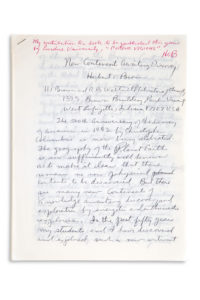 My contribution to book to be published this year
by Purdue University, "
HCB
New Continent Awaiting Discovery
Herbert C. Brown
H. C. Brown and R. B. Wetherill Laboratory of Chemistry
1393 Brown Building, Purdue University
West Lafayette, Indiana 47907-1393
The 500th Anniversary of the discovery
of America in 1492 by Christopher
Columbus is now being celebrated.
The geography of the planet Earth
is now sufficiently well known
as to make it clear that there
remain no new physical
continents to be discovered. But there
are many new Continents of
Knowledge awaiting discovery and
exploration by energetic enthusiastic
explorers. In the past fifty years
my students and I have discovered
and explored such a new continent